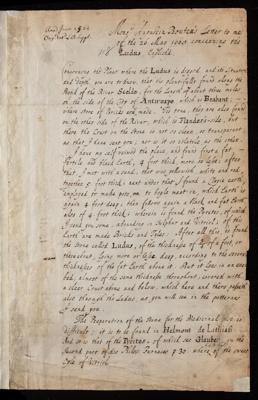 Mons.r Augustin Boutens Letter to me
of the 20 May 1680 concerning the
Ludus Celsi.
Concerning the Place where the Ludus is digged, and its Situation
and Depth you are to know, that this place is found along the
Road of the River Scelde, for the Length of about three miles
on the side of the City of Antwerpe, which is Brabant;
where store of Bricks are made. Its true, they are also found
on the other side of the River, which is Flanders side, but
there the Crust on the Stone is not so clean, or transparent,
as that I have sent you, nor is it so relating to the cure.
I have my self visited the place, and found first, a
fertile and black Earth, 4 foot thick, more or less; after
this, I met with a sand, that was yellowish, white and red,
together 5 foot thick; next after that I found a Blew earth,
employed to make pots, or to paste meat in, which Earth is
again 4 foot deep; then follows again a Black and fat Earth
also of 4 foot thick; wherein is found the Pyrites, of which
I send you some, abounding in Sulphur and Vitriol; of this
Earth are made Bricks and Tiles. After all this, is found
the stone called Ludus, of the thickness of of a foot, or
thereabout, lying more or less deep, according to the several
thicknesses of the fat Earth above it. That it lies in an even
bed, almost of the same thickness throughout, covered with
a clear Crust above and below, which here and there passeth
also through the Ludus, as you will see in the patterns
I send you.
The Preparation of the stone for the Medicinal use is
difficult; it is to be found in Helmont de Lithiasi
And so is that of the Pyrites, of which see Glauber in the
Second part of his Philos. Furnaces p. 30. where of the sweet
Oyle of Vitriol.